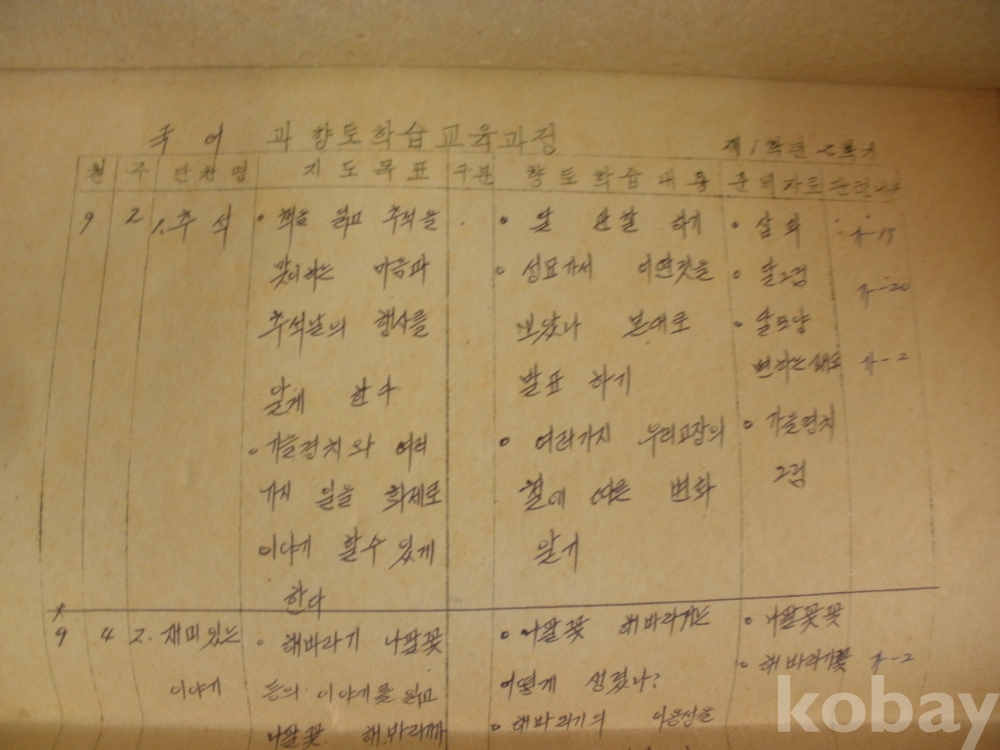 국어 과 향토학습교육과정
제1학년 2학기
월 주 단원명 지도목표 구분 향토학습내용 준비자료 관련
9 2 1. 추석
• 책을 읽고 추석을
맞이하는 마음과
추석날의 행사를
알게 한다
• 가을경치와 여러
가지 일을 화제로
이야기 할수 있게
한다
• 달 관찰 하기
• 성묘가서 어떤것을
보았나 본대로
발표 하기
• 여러가지 우리고장의
변화
알기
• 삽화
• 달그림
• 달모양
변하는
• 가을경치
그림
9 4 2. 재미있는
이야기
• 해바라기 나팔꽃
등의 이야기를 읽고
나팔꽃 해바라기
• 나팔꽃 해바라기는
어떻게 생겼나?
• 해바라기의
• 나팔꽃
• 해바라기꽃
kobay